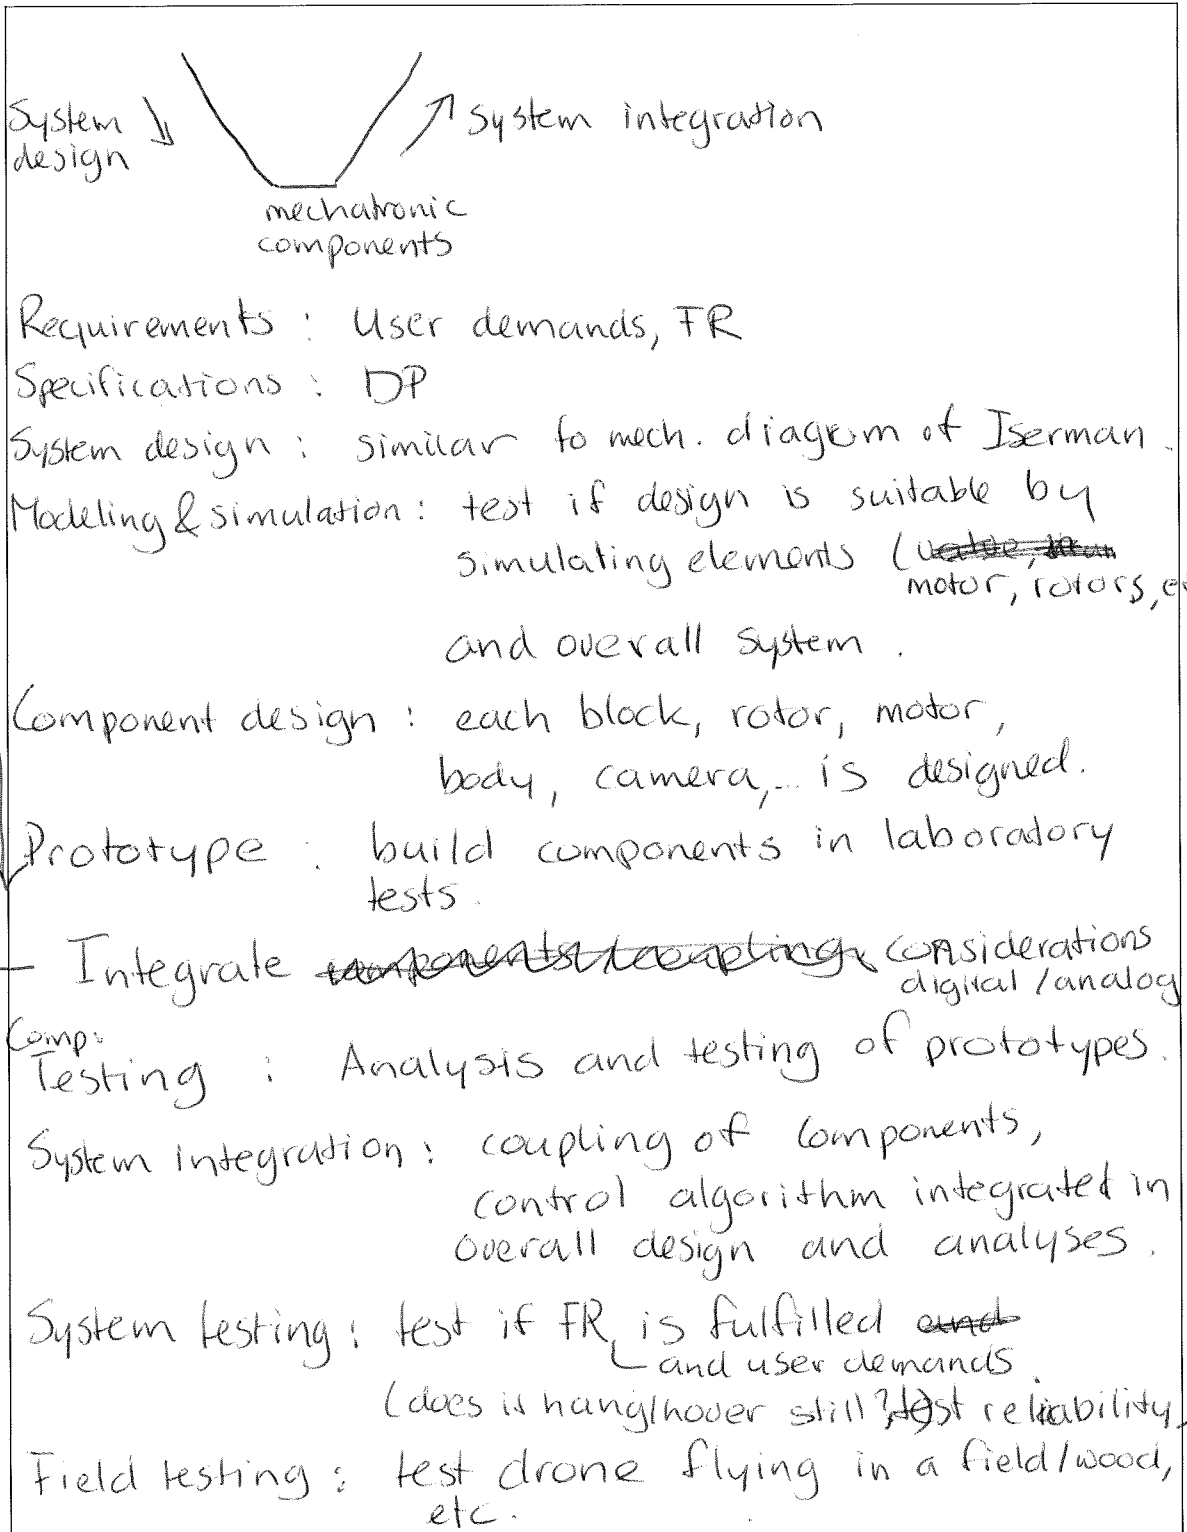 System
design
System integration
mechatronic
components
Requirements : User demands, FR
Specifications : DP
System design : similar to mech. diagram of Iserman.
Modeling & simulation : test if design is suitable by
simulating elements (
motor, rotors, e
and overall system.
Component design : each block, rotor, motor,
body, camera,... is designed.
Prototype : build components in laboratory
tests.
- Integrate considerations
digital/analog
Comp:
Testing : Analysis and testing of prototypes.
System integration : coupling of components,
control algorithm integrated in
overall design and analyses.
System testing : test if FR is fulfilled
and user demands.
(does it hang/hover still?, test reliability,
Field testing : test drone flying in a field/wood,
etc.